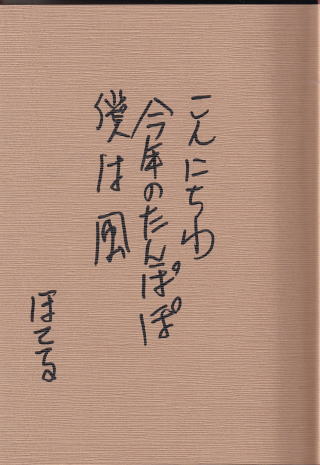 こんにちわ
今年のたんぽぽ
僕は風
ほてる